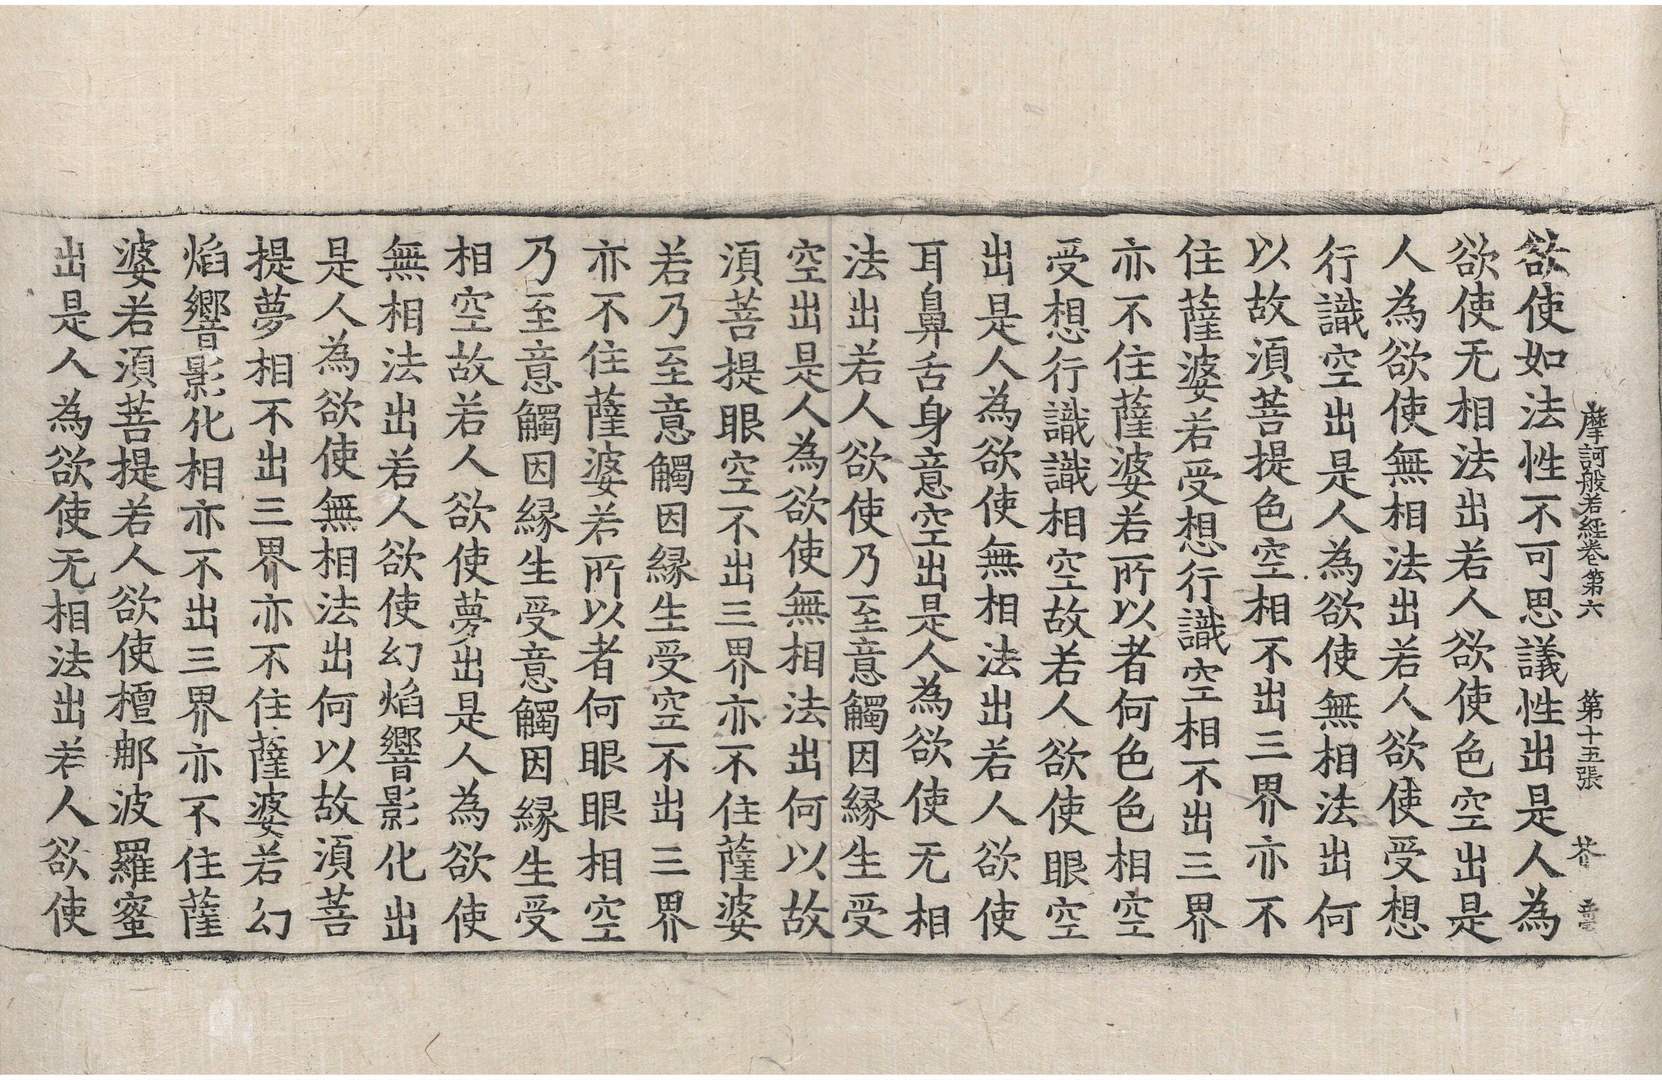 摩訶般若經卷第六 第十五張 芥
欲使如法性不可思議性出是人為
欲使无相法出若人欲使色空出是
人為欲使無相法出若人欲使受想
行識空出是人為欲使無相法出何
以故須菩提色空相不出三界亦不
住薩婆若受想行識空相不出三界
亦不住薩婆若所以者何色色相空
受想行識識相空故若人欲使眼空
出是人為欲使無相法出若人欲使
耳鼻舌身意空出是人為欲使无相
法出若人欲使乃至意觸因縁生受
空出是人為欲使無相法出何以故
須菩提眼空不出三界亦不住薩婆
若乃至意觸因縁生受空不出三界
亦不住薩婆若所以者何眼眼相空
乃至意觸因縁生受意觸因縁生受
相空故若人欲使夢出是人為欲使
無相法出若人欲使幻焰響影化出
是人為欲使無相法出何以故須菩
提夢相不出三界亦不住薩婆若幻
焰響影化相亦不出三界亦不住薩
婆若須菩提若人欲使檀那波羅蜜
出是人為欲使无相法出若人欲使